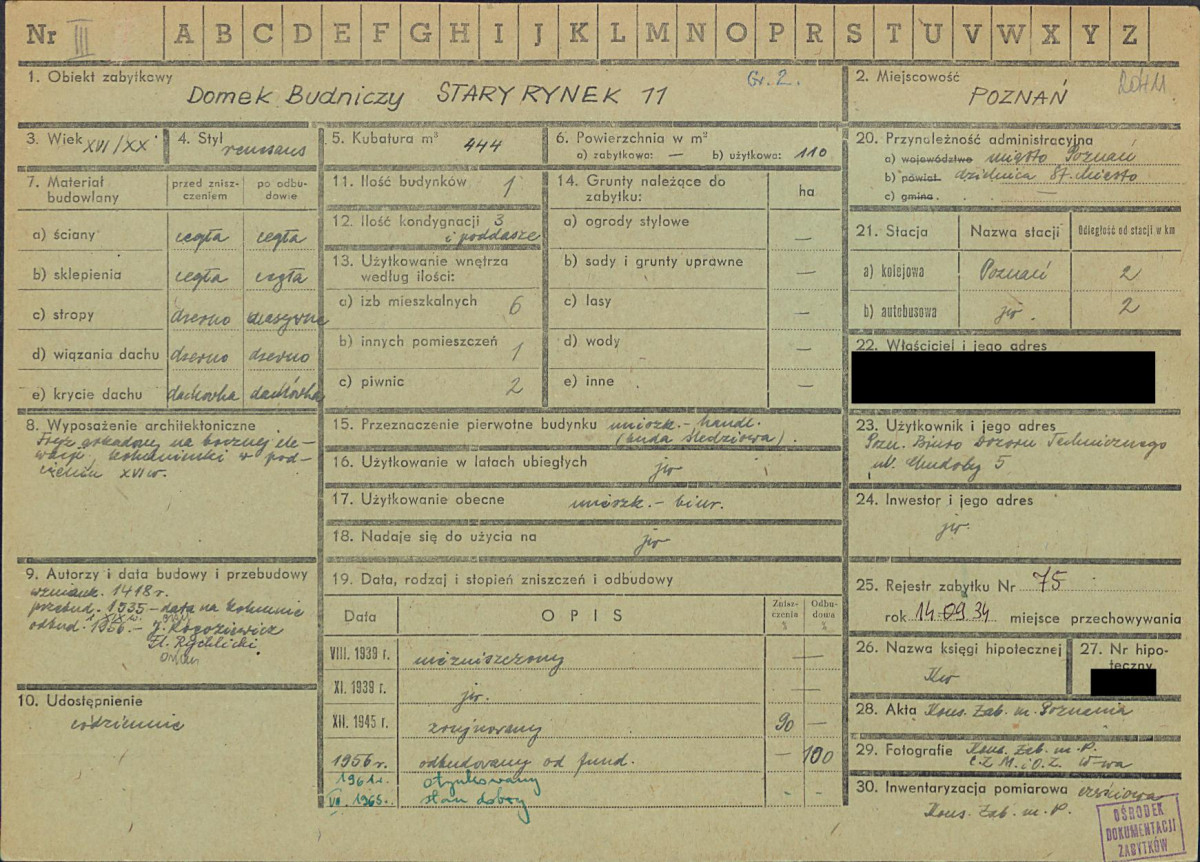 Nr III A B C D E F G H I J K L M N O P R S T U V W X Y Z
1. Obiekt zabytkowy
Gr. 2.
Domek Budniczy STARY RYNEK 11
2. Miejscowość
POZNAŃ
3. Wiek XVI/XX
4. Styl renesans
5. Kubatura m³ 444
6. Powierzchnia w m²
a) zabytkowa: — b) użytkowa: 110
7. Materiał budowlany
przed znisz-
czeniem
po odbu-
dowie
a) ściany cegła cegła
b) sklepienia cegła cegła
c) stropy drewno masywne
d) wiązania dachu drewno drewno
e) krycie dachu dachówka dachówka
8. Wyposażenie architektoniczne
na bocznej ele-
wacji, w pod-
cieniu XVI w.
9. Autorzy i data budowy i przebudowy
wzmiank. 1418 r.
przebud. 1535 – data na kolumnie
odbud. 1956. –
10. Udostępnienie
codziennie
11. Ilość budynków 1
12. Ilość kondygnacji 3
i poddasze
13. Użytkowanie wnętrza
według ilości:
a) izb mieszkalnych 6
b) innych pomieszczeń 1
c) piwnic 2
14. Grunty należące do
zabytku:
ha
a) ogrody stylowe —
b) sady i grunty uprawne —
c) lasy —
d) wody —
e) inne —
15. Przeznaczenie pierwotne budynku mieszk. – handl.
(buda śledziowa).
16. Użytkowanie w latach ubiegłych jw
17. Użytkowanie obecne mieszk. – biur.
18. Nadaje się do użycia na jw
19. Data, rodzaj i stopień zniszczeń i odbudowy
Data OPIS Znisz-
czenie
%
Odbu-
dowa
%
VIII. 1939 r. niezniszczony —
XI. 1939 r. jw. —
XII. 1945 r. zrujnowany 90 —
1956 r. odbudowany od fund. — 100
1961 r. otynkowany
VI. 1965. stan dobry - -
20. Przynależność administracyjna
a) województwo miasto Poznań
b) powiat dzielnica St. Miasto
c) gmina. —
21. Stacja Nazwa stacji Odległość od stacji w km
a) kolejowa Poznań 2
b) autobusowa jw. 2
22. Właściciel i jego adres
23. Użytkownik i jego adres
Pozn. Biuro Dozoru Technicznego
ul. 5
24. Inwestor i jego adres
jw.
25. Rejestr zabytku Nr 75
rok 14.09.34 miejsce przechowywania
26. Nazwa księgi hipotecznej
Kw
27. Nr hipo-
teczny
28. Akta Kons. Zab. m. Poznania
29. Fotografie Kons. Zab. m. P.
W-wa
30. Inwentaryzacja pomiarowa częściowa
Kons. Zab. m. P.
OŚRODEK
DOKUMENTACJI
ZABYTKÓW